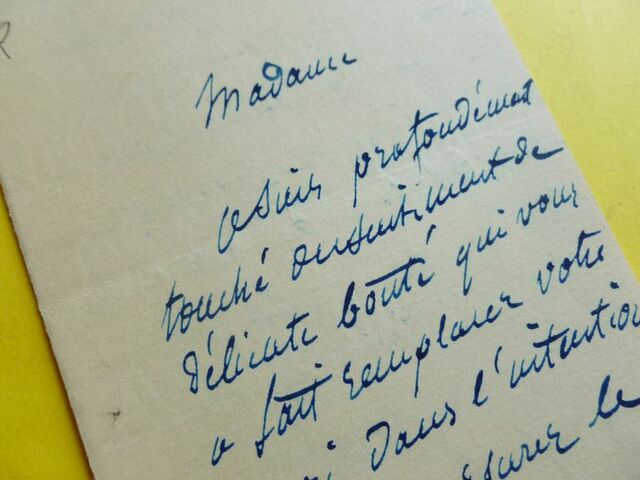 Madame
je suis profondément
touché du sentiment de
délicate bonté qui vous
a fait remplacer votre
dans l'intention
le